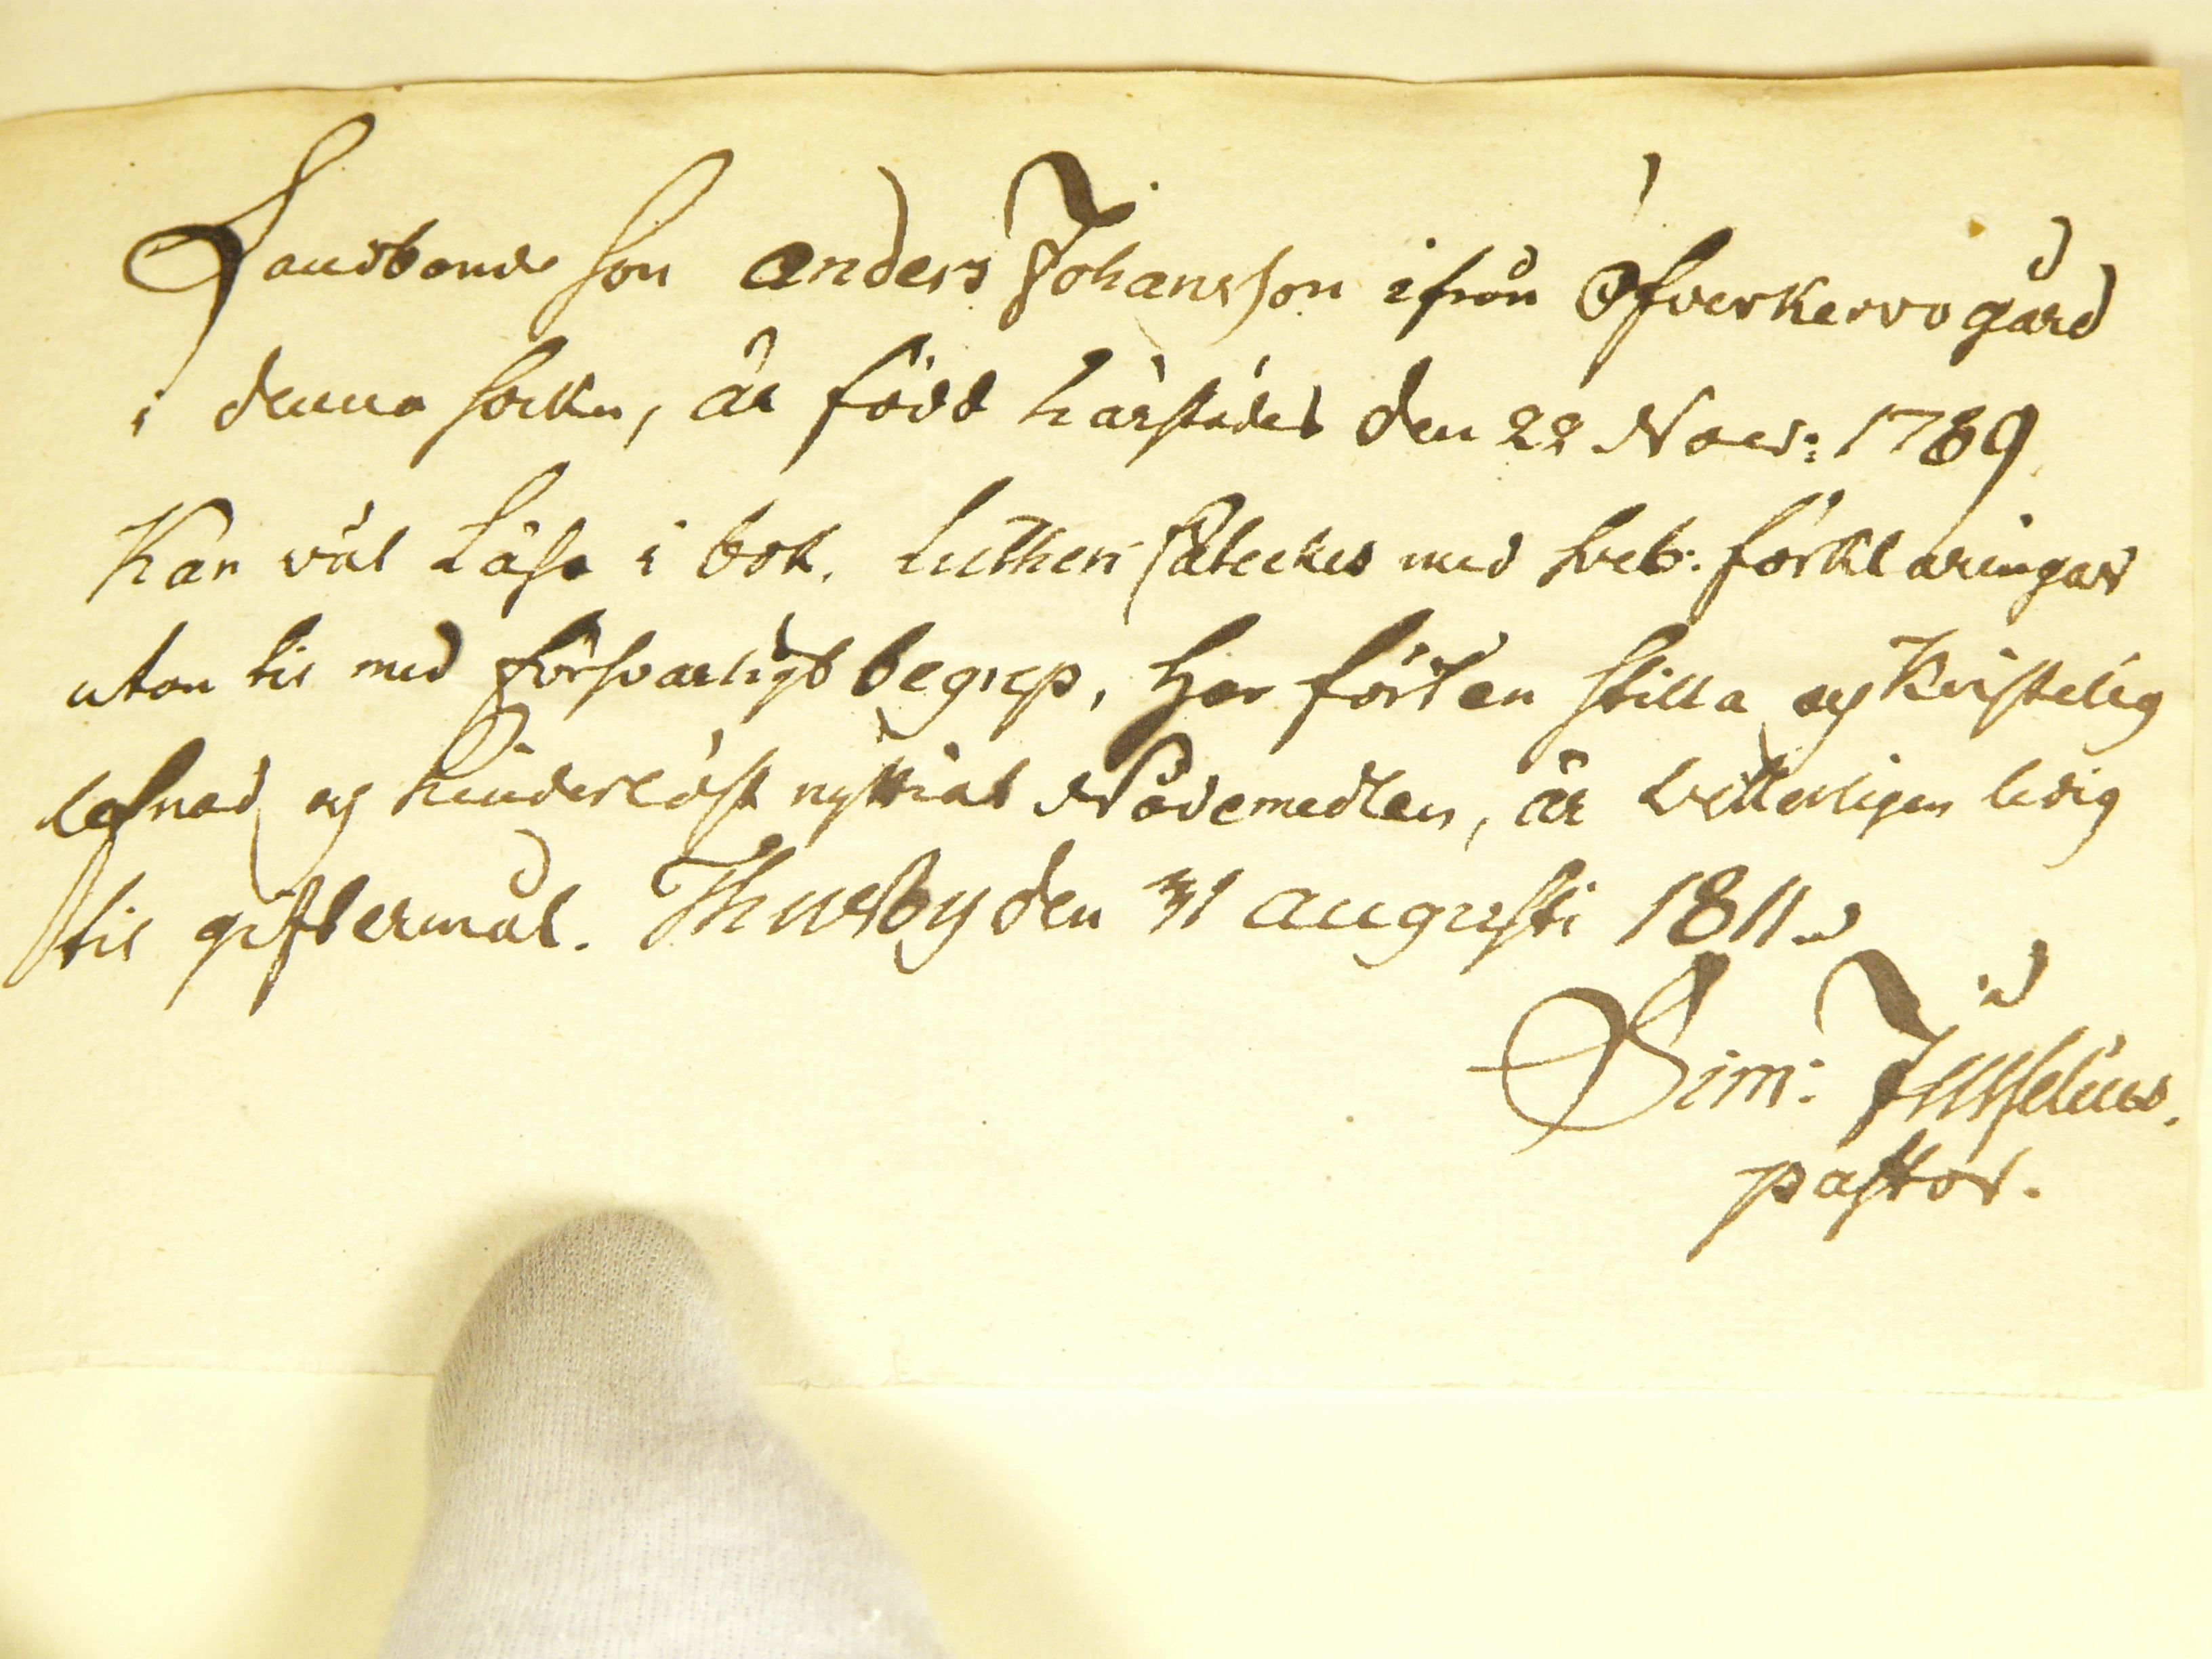 Landbonde son Anders Johansson ifrån Öfverkervo gård
i denna sokn, är född härstädes den 22 Nov: 1789
Kan väl Läsa i bok. Lutheri Cateches med Sveb: förklaringar
utan til med försvarligt begrep, Har fört en stilla og Kristelig
lefnad og hinderlöst nyttiat Nådemedlen, är vetterligen ledig
til giftermål. Thusby den 31 augusti 1811.
Sim: Jusselius.
pastor.